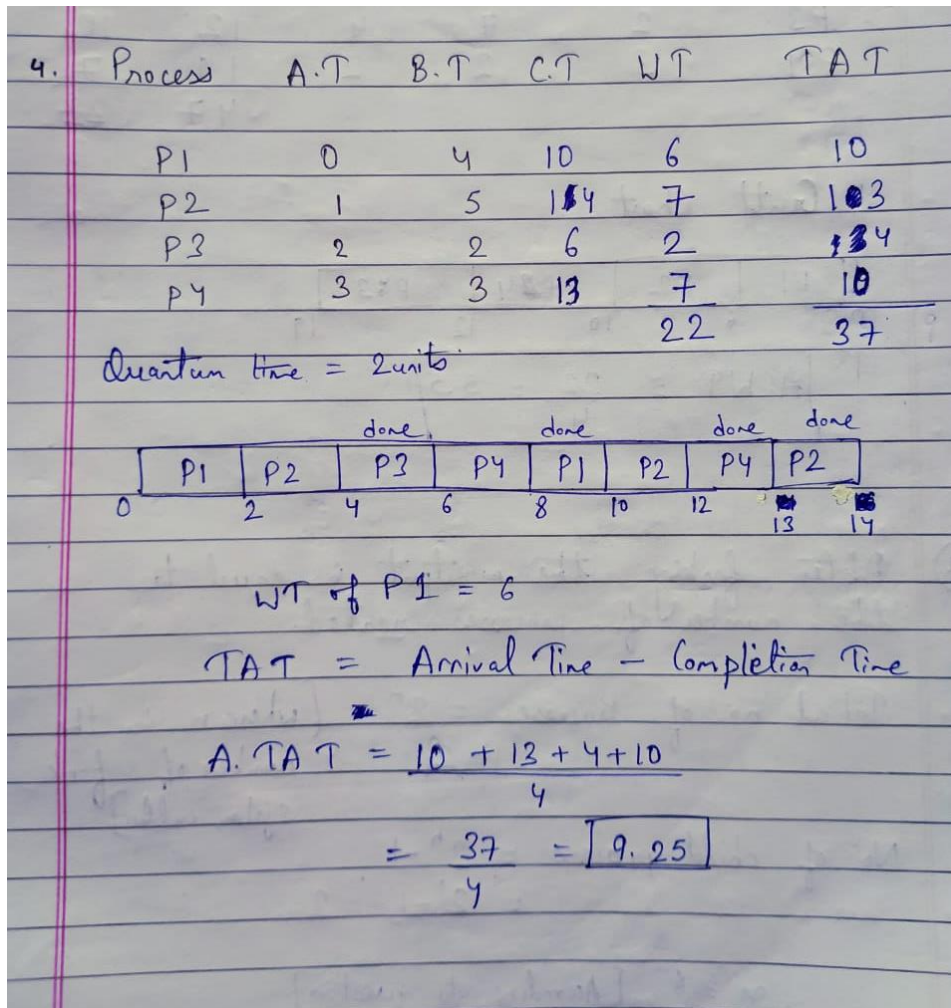 4. Process A.T B.T C.T WT TAT
P1 0 4 10 6 10
P2 1 5 14 7 13
P3 2 2 6 2 4
P4 3 3 13 7 10
22 37
Quantum time = 2units
done done done done
P1 P2 P3 P4 P1 P2 P4 P2
0 2 4 6 8 10 12 13 14
WT of P1 = 6
TAT = Arrival Time - Completion Time
A. TAT = 10 + 13 + 4 + 10
4
= 37 = 9.25
4